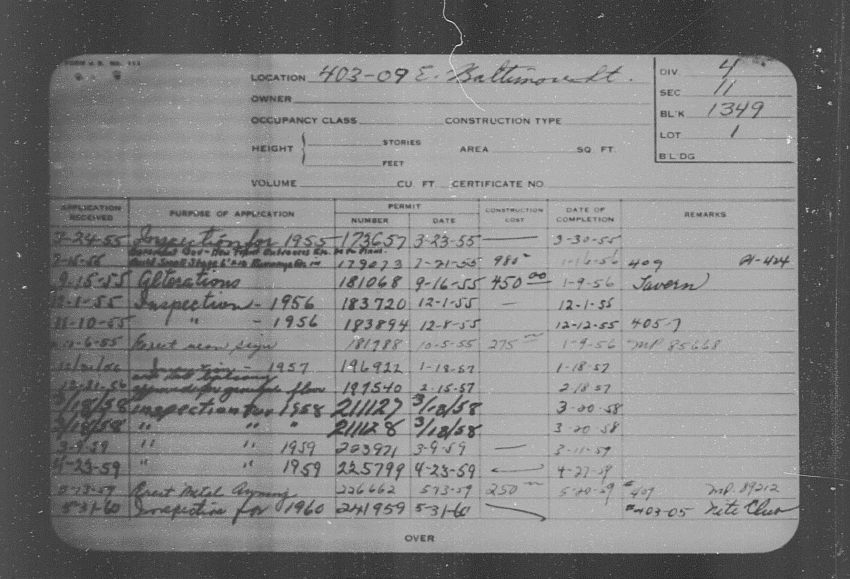 LOCATION 403-09 E. Baltimore St.
DIV 4
SEC 11
OWNER
BL'K 1349
OCCUPANCY CLASS CONSTRUCTION TYPE
LOT 1
HEIGHT STORIES AREA SQ FT
FEET
BLDG
VOLUME CU FT CERTIFICATE NO
APPLICATION RECEIVED PURPOSE OF APPLICATION PERMIT NUMBER DATE CONSTRUCTION COST DATE OF COMPLETION REMARKS
2-24-55 Inspection for 1955 173657 3-23-55 — 3-30-55
7-15-55 179073 7-21-55 980 1-16-56 409
9-15-55 Alterations 181068 9-16-55 450 00 1-9-56 Tavern
12-1-55 Inspection - 1956 183720 12-1-55 — 12-1-55
11-10-55 " - 1956 183894 12-8-55 12-12-55 405-7
6-55 Erect neon sign 181788 10-5-55 275 1-9-56 MP. 85668
Inspection - 1957 196922 1-18-57 1-18-57
12-21-56 approved for general floor 197540 2-15-57 2-18-57
3/18/58 inspection for 1958 211127 3/18/58 3-20-58
3/18/58 " " " 211128 3/18/58 3-20-58
3-9-59 " " 1959 223921 3-9-59 — 3-11-59
4-23-59 " 1959 225799 4-23-59 — 4-27-59
5-13-59 Erect Metal Awning 226662 5-13-59 250 5-20-59 #409 MP. 89212
5-31-60 Inspection for 1960 241959 5-31-60 #403-05 Nite Club
OVER